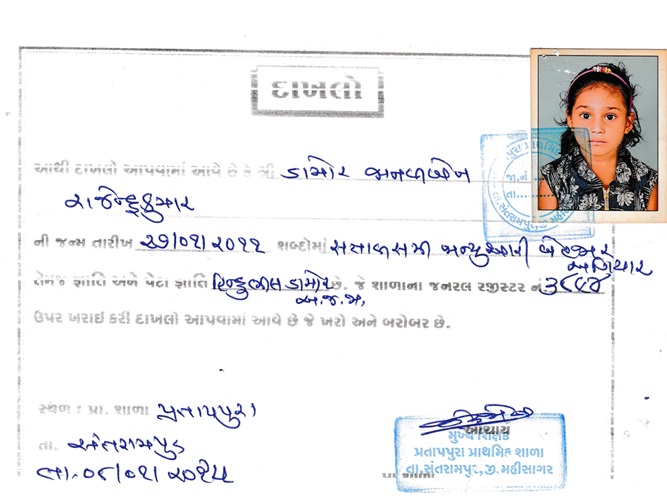 દાખલો
આથી દાખલો આપવામાં આવે છે કે શ્રી ડામોર
રાજેન્દ્રકુમાર
ની જન્મ તારીખ ૨૭/૦૧/૨૦૧૧ શબ્દોમાં સત્તાવીસમી જાન્યુઆરી બે હજાર
અગિયાર
તેમજ જ્ઞાતિ અને પેટા જ્ઞાતિ હિન્દુ ભીલ ડામોર છે. જે શાળાના જનરલ રજીસ્ટર નં
અ.જ.જા.
ઉપર ખરાઈ કરી દાખલો આપવામાં આવે છે જે ખરો અને બરોબર છે.
સ્થળ : પ્રા. શાળા પ્રતાપપુરા
તા. સંતરામપુર
આચાર્ય
મુખ્ય શિક્ષક
પ્રતાપપુરા પ્રાથમિક શાળા
તા.સંતરામપુર,જી.મહીસાગર